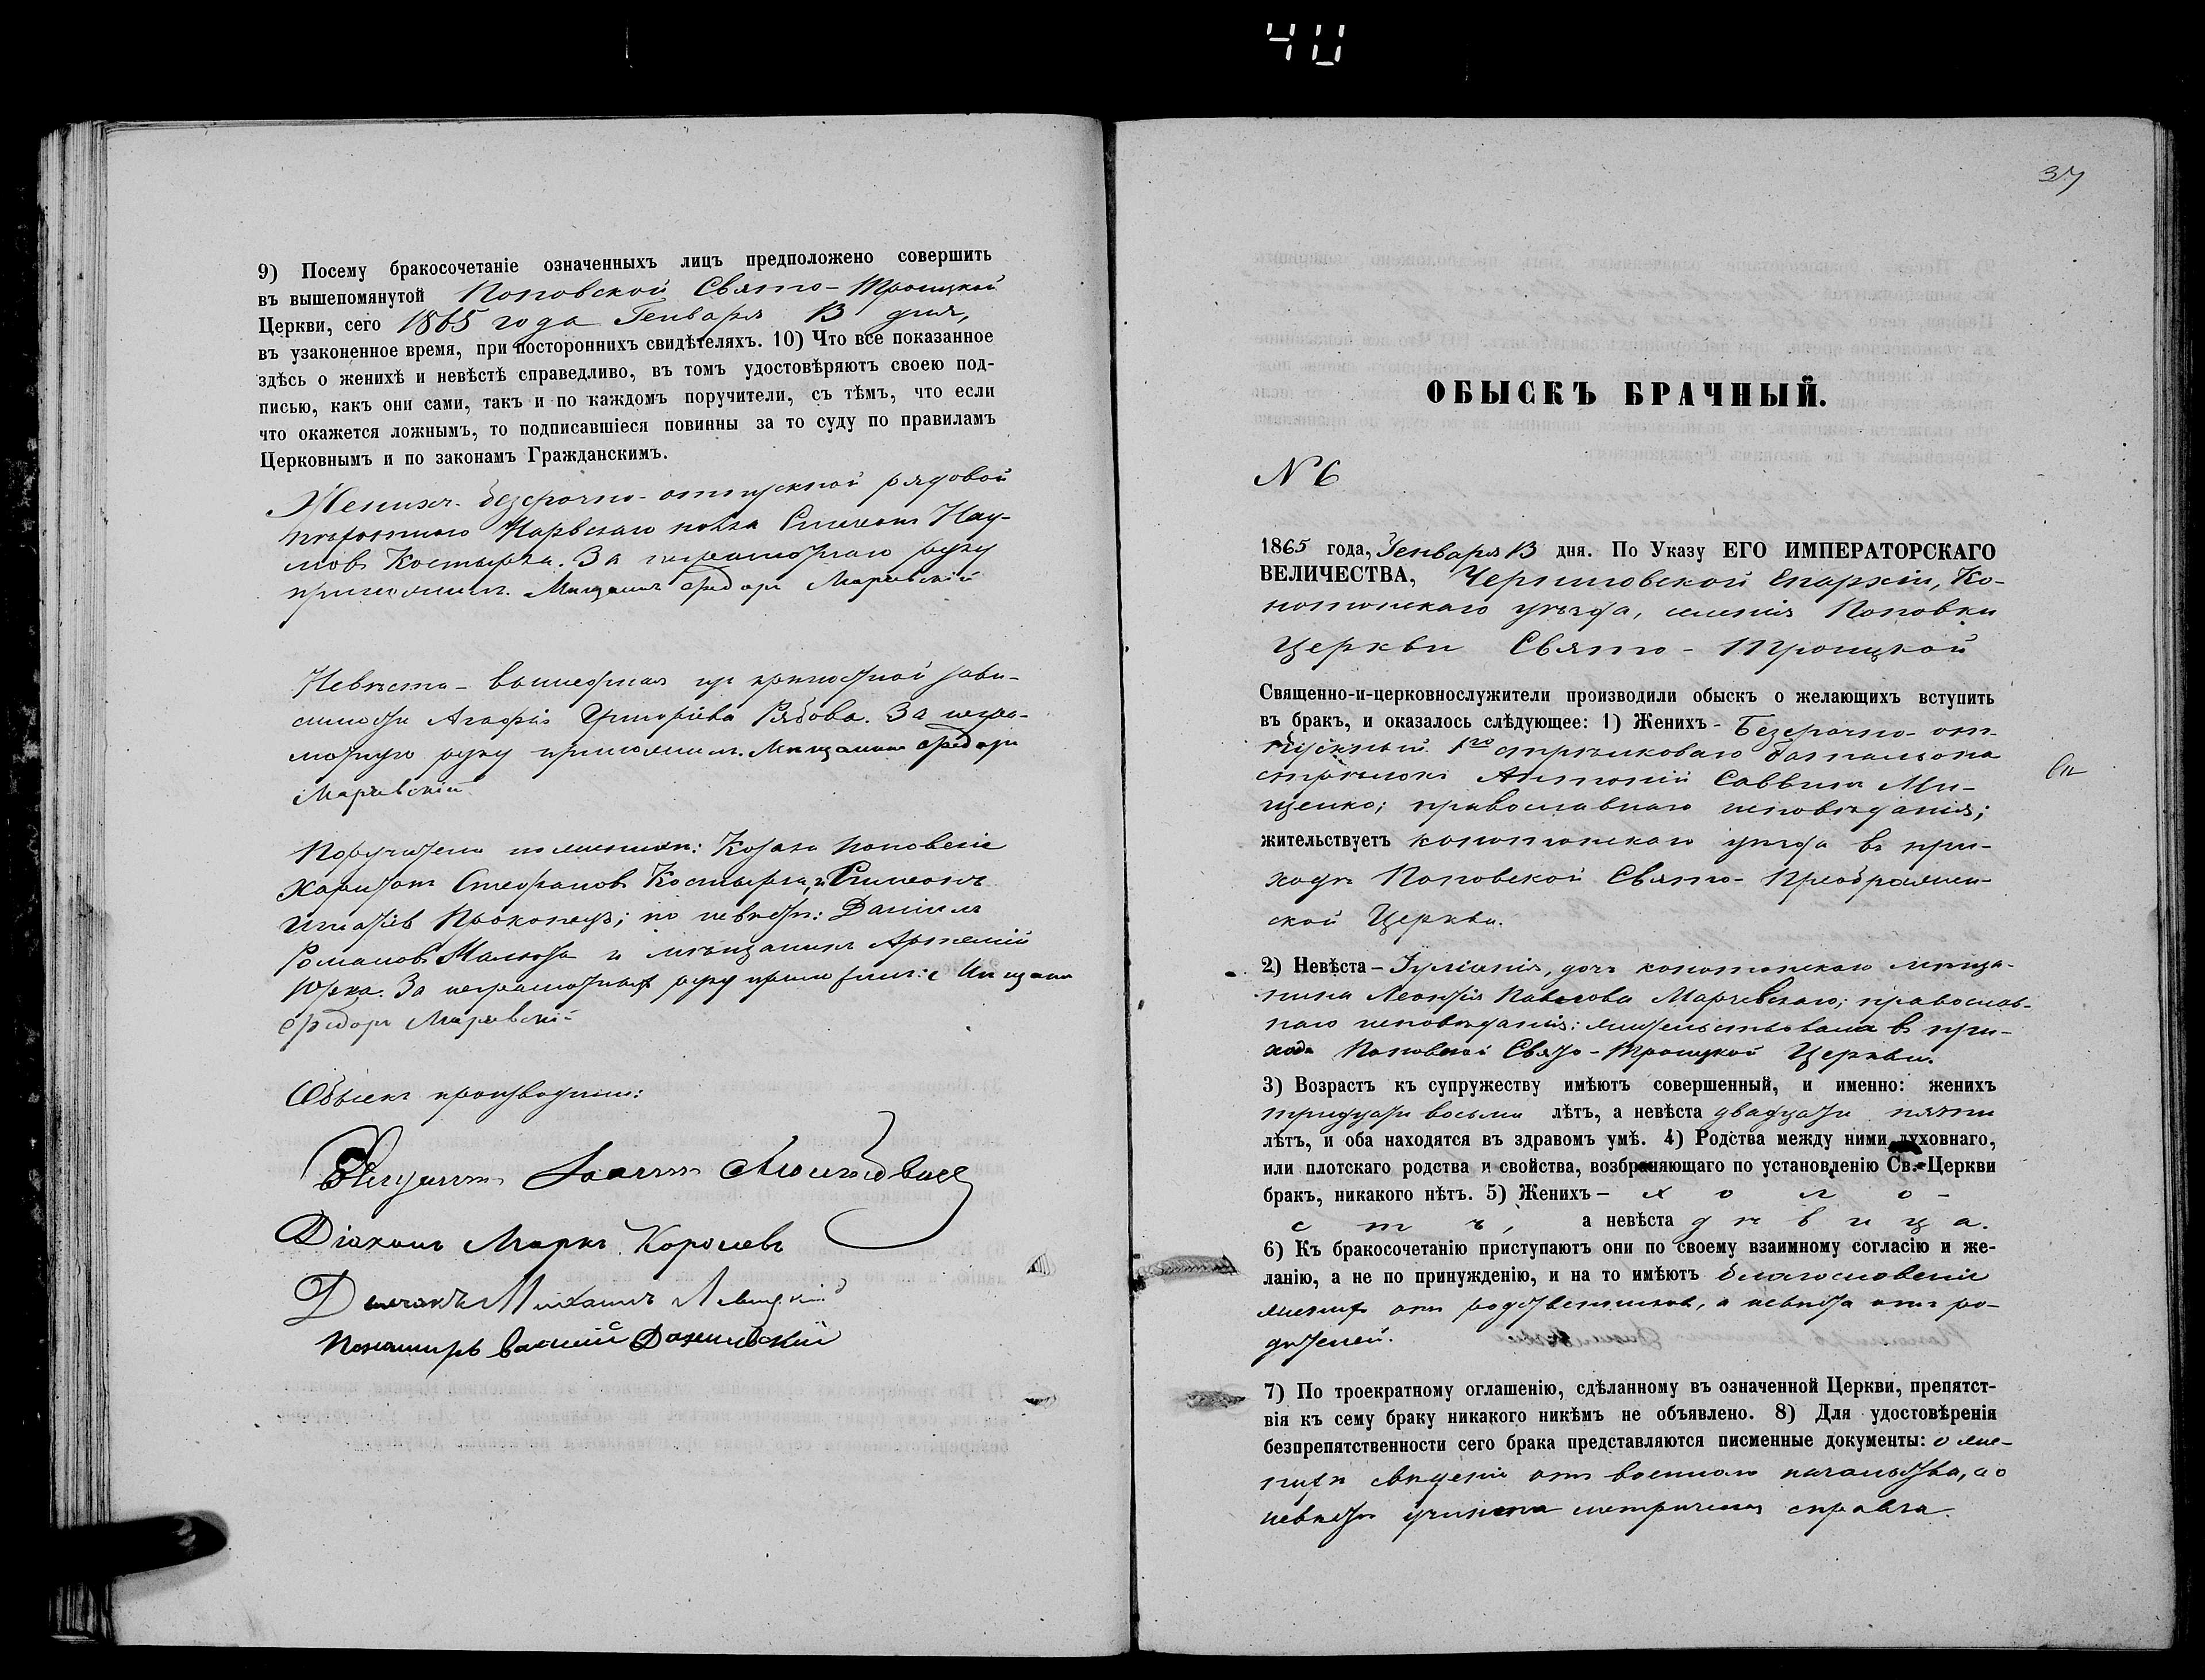 40
9) Посему бракосочетаніе означенныхъ лицъ предположено совершить
въ вышепомянутой Поповской Свято-Троицкой
Церкви, сего 1865 года Генваря 13 дня,
въ узаконенное время, при постороннихъ свидѣтеляхъ. 10) Что все показанное
здѣсь о женихѣ и невѣстѣ справедливо, въ томъ удостовѣряютъ своею под-
писью, какъ они сами, такъ и по каждомъ поручители, съ тѣмъ, что если
что окажется ложнымъ, то подписавшіеся повинны за то суду по правиламъ
Церковнымъ и по законамъ Гражданскимъ.
Женихъ безсрочно-отпускной рядовой
пѣхотнаго Нарвскаго полка Симеонъ Нау-
мовъ Костырка. За неграмотнаго руку
приложилъ Мищанинъ Федоръ Маревскій
Невѣста - вышедшая изъ крѣпостной зави-
симости Агафія Григоріева Рябова. За негра-
мотную руку приложилъ Мищанинъ Федоръ
Маревскій
Поручители по женихѣ: Козаки Поповскіе
Харитонъ Стефановъ Костырка, и Симеонъ
Игнатіевъ Прокопецъ; по невѣстѣ: Даніилъ
Романовъ Малюга и мѣщанинъ Артемій
Юрка. За неграмотныхъ руку приложилъ Мищани
Федоръ Маревскій
Обыскъ производили:
Священникъ Іоаннъ
Діаконъ Маркъ Королевъ
Дьячокъ Михаилъ Левицкій
Пономарь Василій Данилевскій
37
ОБЫСКЪ БРАЧНЫЙ.
N 6
1865 года, Генваря 13 дня. По Указу ЕГО ИМПЕРАТОРСКАГО
ВЕЛИЧЕСТВА, Черниговской Епархіи, Ко-
нотопскаго уѣзда, селенія Поповки
Церкви Свято-Троицкой
Священно-и-церковнослужители производили обыскъ о желающихъ вступить
въ бракъ, и оказалось слѣдующее: 1) Женихъ - Безсрочно-от-
пускный 1го стрѣлковаго баталіона
стрѣлокъ Антоній Саввинъ Ми-
щенко; православнаго исповѣданія;
жительствуетъ конотопскаго уѣзда въ при-
ходѣ Поповской Свято-Преображен-
ской Церкви.
2) Невѣста - Іуліанія, дочь конотопскаго мѣща-
нина Леонтія Павлова Марчевскаго; православ-
наго исповѣданія; жительствовала въ при-
ходѣ Поповской Свято-Троицкой Церкви.
3) Возрастъ къ супружеству имѣютъ совершенный, и именно: женихъ
тридцати восьми лѣтъ, а невѣста двадцати пяти
лѣтъ, и оба находятся въ здравомъ умѣ. 4) Родства между ними духовнаго,
или плотскаго родства и свойства, возбраняющаго по установленію Св. Церкви
бракъ, никакого нѣтъ. 5) Женихъ - холо-
стъ, а невѣста дѣвица.
6) Къ бракосочетанію приступаютъ они по своему взаимному согласію и же-
ланію, а не по принужденію, и на то имѣютъ благословеніе
женихъ отъ родственниковъ, а невѣста отъ ро-
дителей.
7) По троекратному оглашенію, сдѣланному въ означенной Церкви, препятст-
вія къ сему браку никакого никѣмъ не объявлено. 8) Для удостовѣренія
безпрепятственности сего брака представляются писменные документы: о же-
нихѣ свѣденіе отъ военнаго начальства, а о
невѣстѣ учинена метрическая справка.